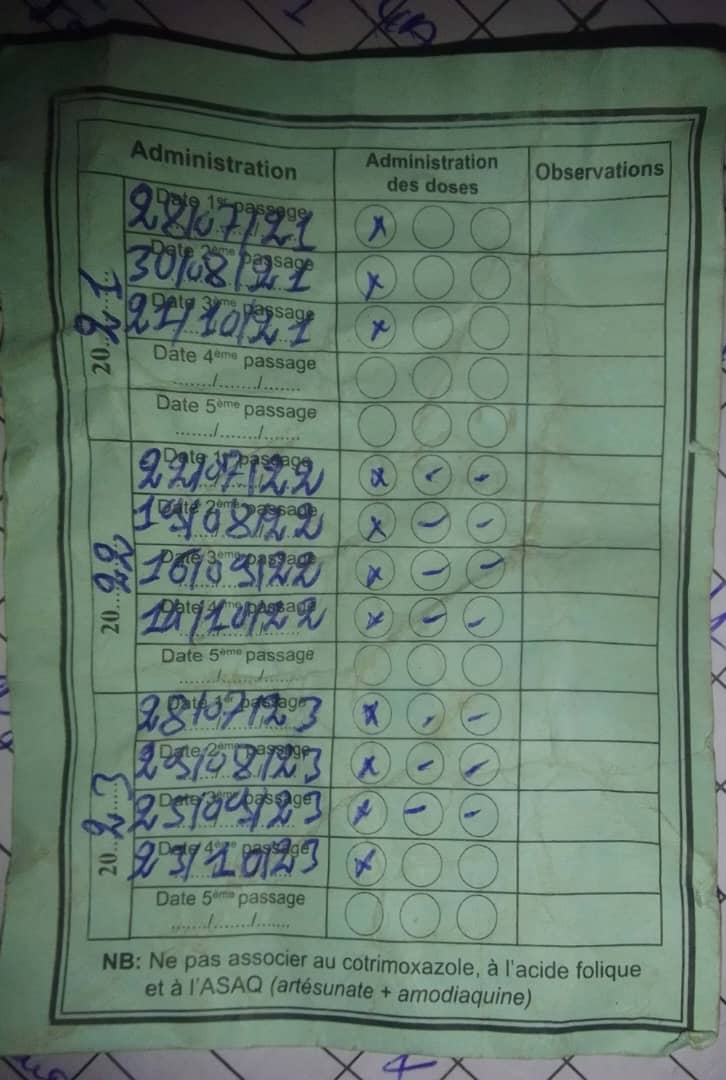 Administration
Administration des doses
Observations
2021
Date 1er passage
28/07/21
x
Date 2ème passage
30/08/21
x
Date 3ème passage
21/10/21
x
Date 4ème passage
....../......./.......
Date 5ème passage
....../......./.......
2022
Date 1er passage
22/07/22
x - -
Date 2ème passage
/08/22
x - -
Date 3ème passage
16/09/22
x - -
Date 4ème passage
/10/22
x - -
Date 5ème passage
....../......./.......
2023
Date 1er passage
28/07/23
x - -
Date 2ème passage
29/08/23
x - -
Date 3ème passage
25/09/23
x - -
Date 4ème passage
/10/23
x
Date 5ème passage
....../......./.......
NB: Ne pas associer au cotrimoxazole, à l'acide folique
et à l'ASAQ (artésunate + amodiaquine)